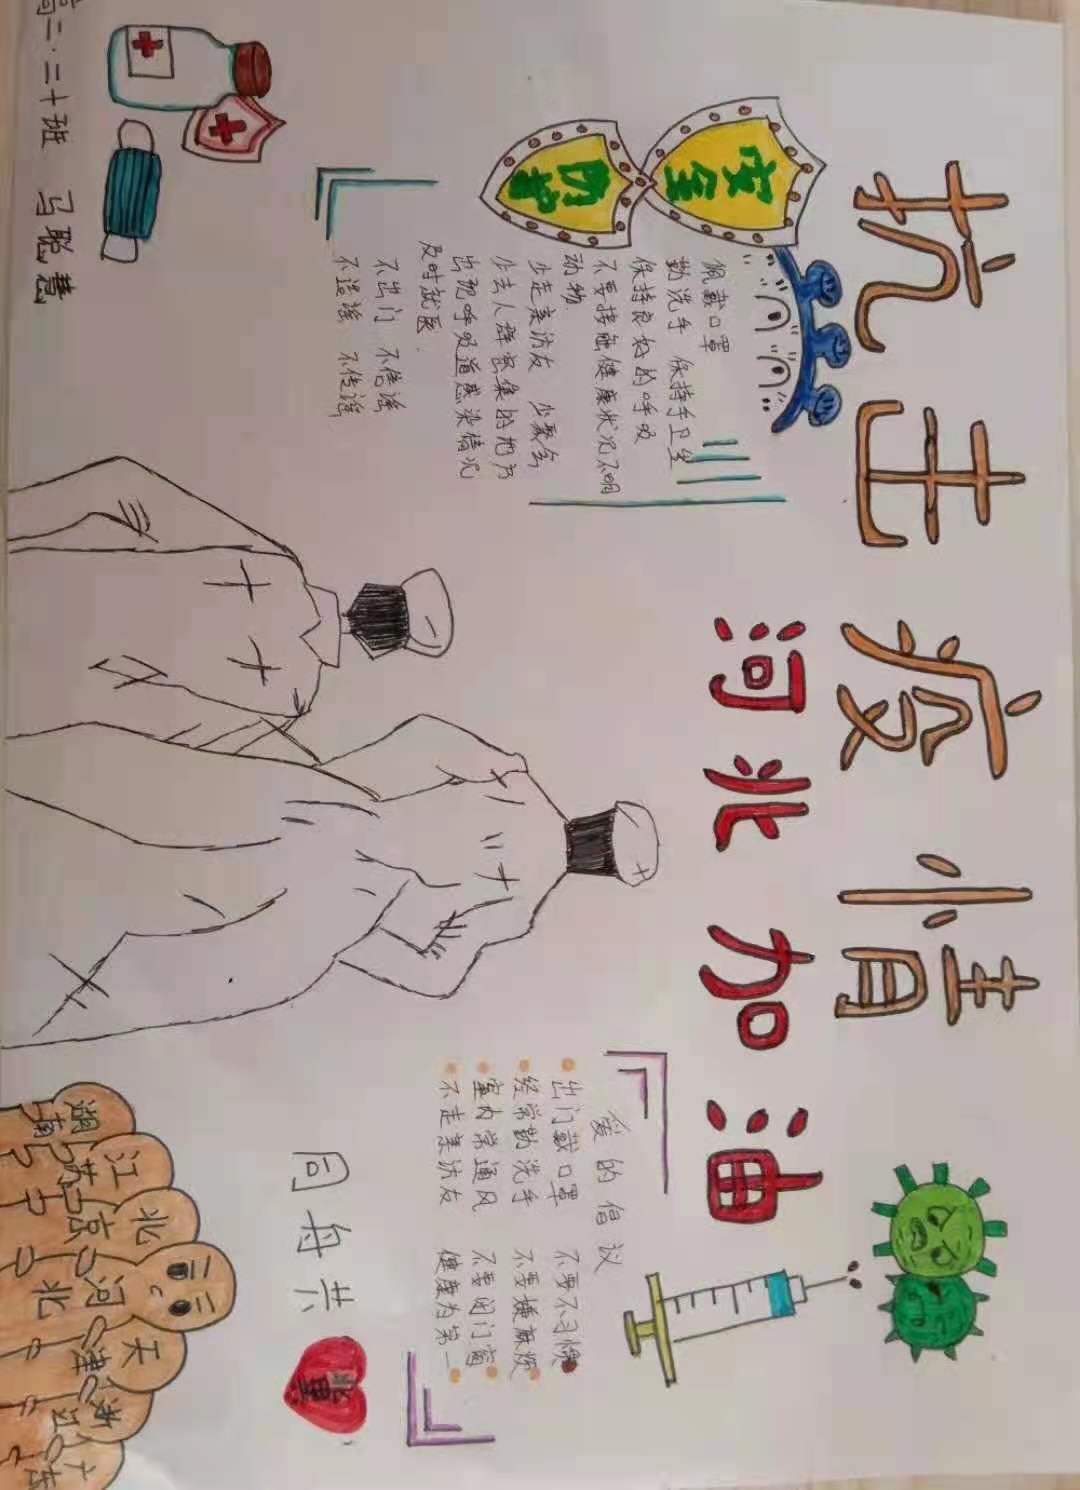 抗击疫情
河北加油
安全
防护
佩戴口罩
勤洗手 保持手卫生
保持良好的呼吸
不要接触健康状况不明
动物
少走亲访友 少聚会
少去人群密集的地方
出现呼吸道感染情况
及时就医
不出门 不信谣
不造谣 不传谣
爱的倡议
出门戴口罩 不要不习惯
经常勤洗手 不要嫌麻烦
室内常通风 不要闭门窗
不走亲访友 健康为第一
同舟共冀
湖南
江苏
北京
河北
天津
浙江
广东
高二·二十班 马聪慧